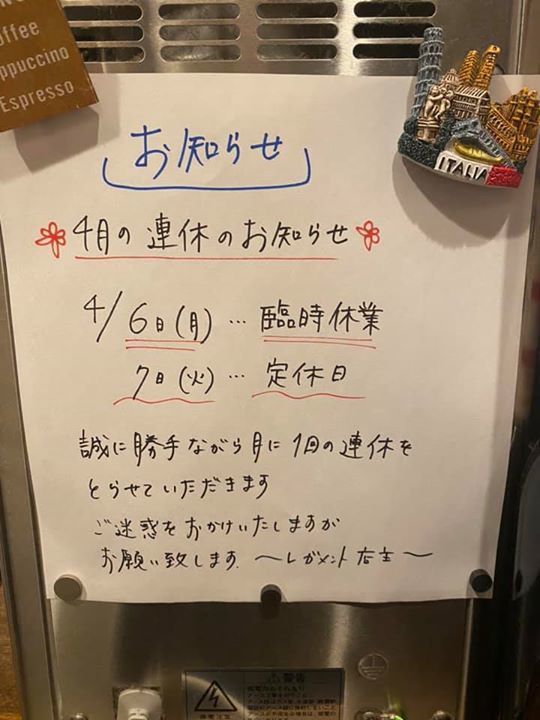 offee
ppuccino
Espresso
ITALIA
お知らせ
4月の連休のお知らせ
4/6日(月)…臨時休業
7日(火)…定休日
誠に勝手ながら月に1回の連休を
とらせていただきます
ご迷惑をおかけいたしますが
お願い致します。〜レガメント店主〜
警告